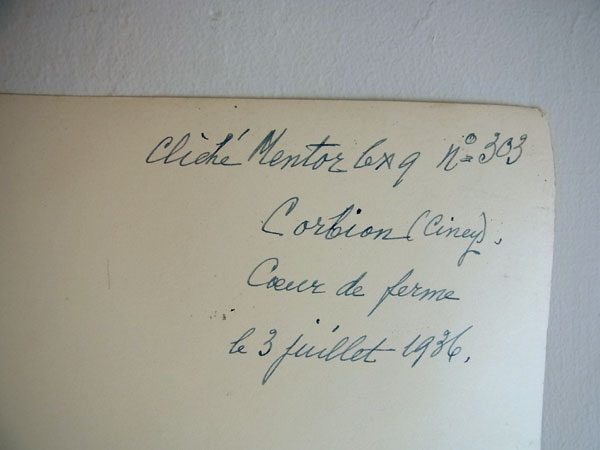 Cliché Mentor 6x9 n° 303
Corbion (Ciney).
Cœur de ferme
le 3 juillet 1936.